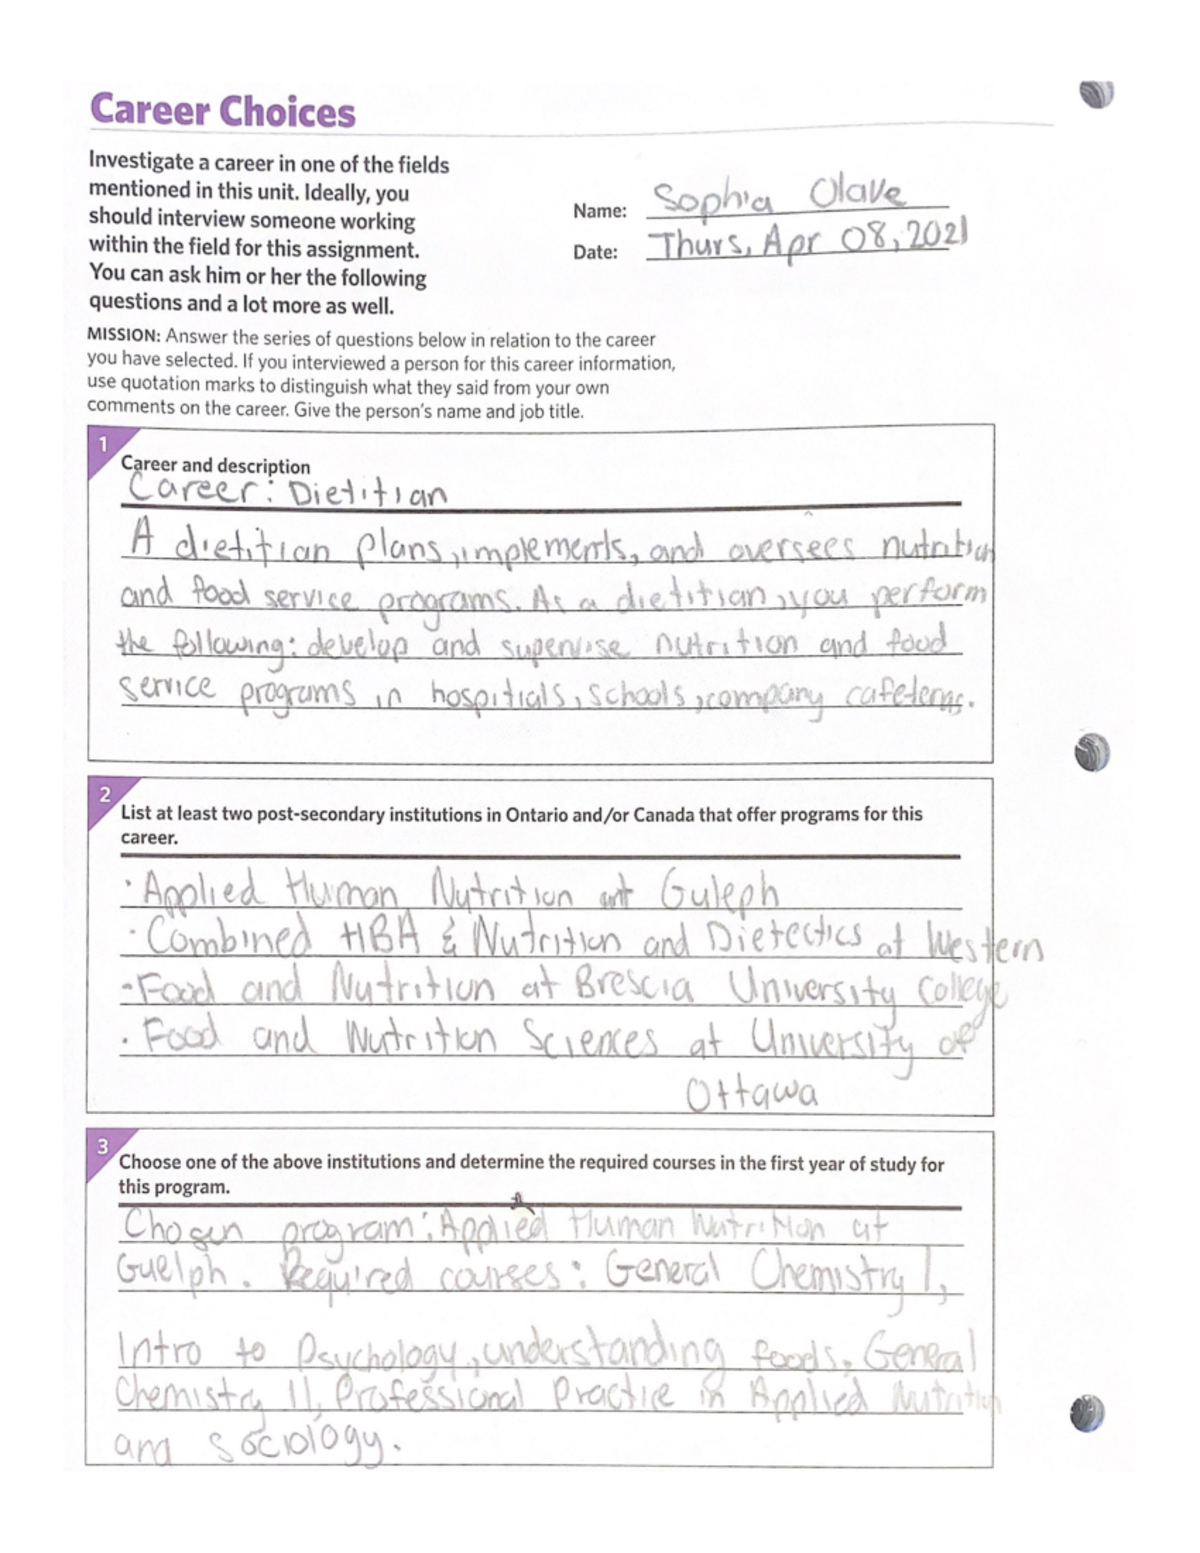 Career Choices
Investigate a career in one of the fields
mentioned in this unit. Ideally, you
should interview someone working
within the field for this assignment.
You can ask him or her the following
questions and a lot more as well.
Name: Sophia Olave
Date: Thurs, Apr 08, 2021
MISSION: Answer the series of questions below in relation to the career
you have selected. If you interviewed a person for this career information,
use quotation marks to distinguish what they said from your own
comments on the career. Give the person's name and job title.
1
Career and description
Career: Dietitian
A dietitian plans, implements, and oversees nutrition
and food service programs. As a dietitian, you perform
the following: develop and supervise nutrition and food
service programs in hospitials, schools, company cafeterias.
2
List at least two post-secondary institutions in Ontario and/or Canada that offer programs for this
career.
· Applied Human Nutrition at Guleph
· Combined HBA & Nutrition and Dietectics at Western
- Food and Nutrition at Brescia University College
· Food and Nutrition Sciences at University of
Ottawa
3
Choose one of the above institutions and determine the required courses in the first year of study for
this program.
Chosen program: Applied Human Nutrition at
Guelph. Required courses: General Chemistry I,
Intro to Psychology, understanding foods, General
Chemistry II, Professional Practice in Applied Nutrition
and Sociology.